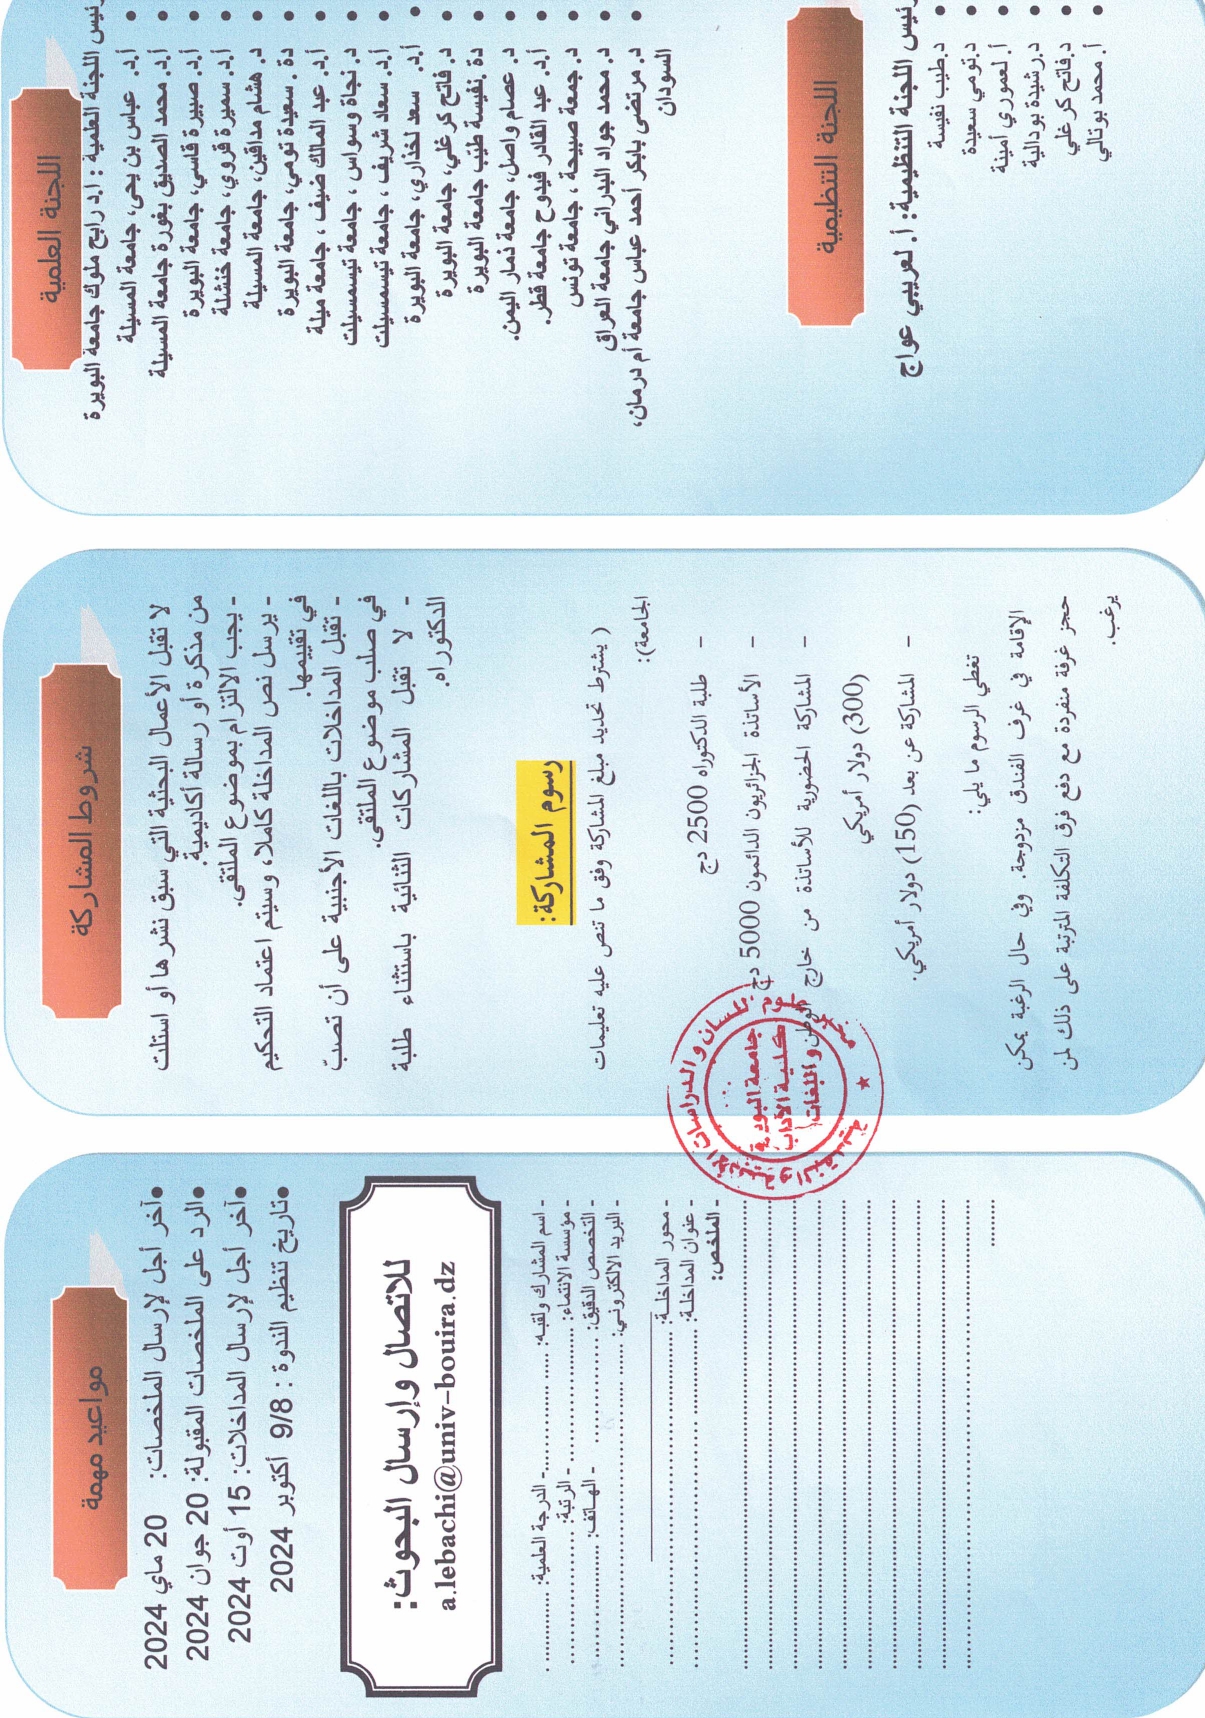 اللجنة العلمية
رئيس اللجنة العلمية : ا.د رابح ملوك جامعة البويرة
• أ.د. عباس بن يحي، جامعة المسيلة
• أ.د. محمد الصديق بغورة جامعة المسيلة
• أ.د. صبيرة قاسي، جامعة البويرة
• أ.د. سميرة قروي، جامعة خنشلة
• د. هشام مداقين، جامعة المسيلة
• دة . سعيدة تومي، جامعة البويرة
• أ.د. عبد المالك ضيف ، جامعة ميلة
• د. نجاة وسواس ، جامعة تيسمسيلت
• أ.د. سعاد شريف ، جامعة تيسمسيلت
• أ.د. سعد لخذاري، جامعة البويرة
• د. فاتح كرغلي، جامعة البويرة
• دة .نفيسة طيب جامعة البويرة
• د. عصام واصل، جامعة ذمار اليمن.
• أ.د. عبد القادر فيدوح جامعة قطر.
• د. جمعة صبيحة ، جامعة تونس
• د. محمد جواد البدراني جامعة العراق
• د. مرتضى بابكر أحمد عباس جامعة أم درمان،
السودان
اللجنة التنظيمية
رئيس اللجنة التنظيمية: أ. لعريبي عواج
• د.طيب نفيسة
• د.تومي سعيدة
• أ. لعموري أمينة
• د.رشيدة بودالية
• د.فاتح كرغلي
• أ. محمد بوتالي
شروط المشاركة
لا تقبل الأعمال البحثية التي سبق نشرها أو استلت
من مذكرة أو رسالة أكاديمية.
- يجب الالتزام بموضوع الملتقى.
- يرسل نص المداخلة كاملا، وسيتم اعتماد التحكيم
في تقييمها.
- تقبل المداخلات باللغات الأجنبية على أن تصب
في صلب موضوع الملتقى.
- لا تقبل المشاركات الثنائية باستثناء طلبة
الدكتوراه.
رسوم المشاركة:
( يشترط تحديد مبلغ المشاركة وفق ما تنص عليه تعليمات
الجامعة):
- طلبة الدكتوراه 2500 دج
- الأساتذة الجزائريون الدائمون 5000 دج
- المشاركة الحضورية للأساتذة من خارج الوطن
(300) دولار أمريكي
- المشاركة عن بعد (150) دولار أمريكي.
تغطي الرسوم ما يلي:
الإقامة في غرف الفندق مزدوجة. وفي حال الرغبة يمكن
حجز غرفة منفردة مع دفع فرق التكلفة المترتبة على ذلك لمن
يرغب.
مخبر علوم اللسان والدراسات الأدبية والنقدية
جامعة البويرة
كلية الآداب
واللغات
مواعيد مهمة
•آخر أجل لإرسال الملخصات: 20 ماي 2024
•الرد على الملخصات المقبولة: 20 جوان 2024
•آخر أجل لإرسال المداخلات: 15 أوت 2024
•تاريخ تنظيم الندوة : 9/8 أكتوبر 2024
للاتصال وإرسال البحوث:
a.lebachi@univ-bouira.dz
- اسم المشارك ولقبه: ............ - الدرجة العلمية: ............
- مؤسسة الانتماء: ............ - الرتبة: ............
- التخصص الدقيق: ............ - الهاتف: ............
- البريد الالكتروني: ............
- محور المداخلة: ............
- عنوان المداخلة: ............
- الملخص: